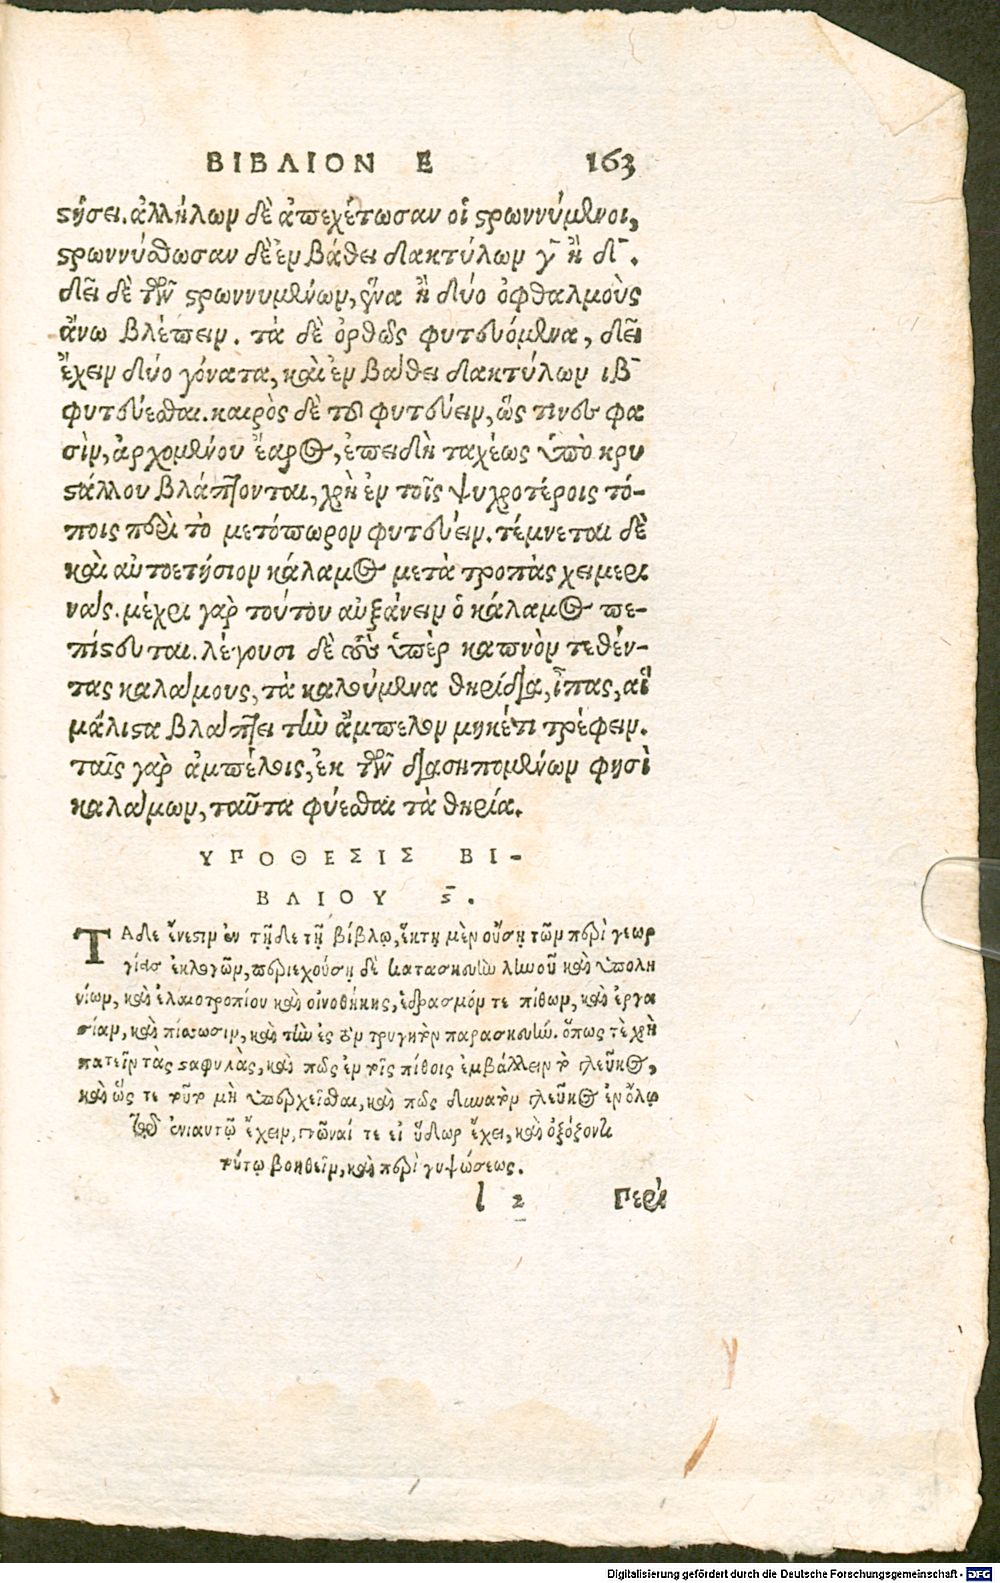 ΒΙΒΛΙΟΝ Ε 163
ςήσει. ἀλλήλων δὲ ἀπεχέτωσαν οἱ ςρωννύμενοι,
ςρωννύσθωσαν δὲ ἐν βάθει δακτύλων γ̄ ἢ δ̄.
δεῖ δὲ τῶν ςρωννυμένων, ἕνα ἢ δύο ὀφθαλμοὺς
ἄνω βλέπειν. τὰ δὲ ὀρθῶς φυτευόμενα, δεῖ
ἔχειν δύο γόνατα, καὶ ἐν βάθει δακτύλων ιβ̄
φυτεύεσθαι. καιρὸς δὲ τοῦ φυτεύειν, ὥς τινες φα
σὶν, ἀρχομένου ἔαρος, ἐπειδὴ ταχέως ὑπὸ κρυ
ςάλλου βλάπτονται, χρὴ ἐν τοῖς ψυχροτέροις τό-
ποις περὶ τὸ μετόπωρον φυτεύειν. τέμνεται δὲ
καὶ αὐτοετήσιον κάλαμος μετὰ τροπὰς χειμερι
νάς. μέχρι γὰρ τούτου αὐξάνειν ὁ κάλαμος πε-
πίςευται. λέγουσι δὲ τοὺς ὑπὲρ καπνὸν τεθέν-
τας καλάμους, τὰ καλούμενα θηρίδια, ἶπας, αἳ
μάλιςα βλάπτει τὴν ἄμπελον μηκέτι τρέφειν.
ταῖς γὰρ ἀμπέλοις, ἐκ τῶν διασηπομένων φησὶ
καλάμων, ταῦτα φύεσθαι τὰ θηρία.
ΥΠΟΘΕΣΙΣ ΒΙ-
ΒΛΙΟΥ ς̄.
ΤΑδε ἔνεςιν ἐν τῇδε τῇ βίβλῳ, ἕκτῃ μὲν οὔσῃ τῶν περὶ γεωρ
γίας ἐκλογῶν, περιεχούσῃ δὲ κατασκευὴν ληνοῦ καὶ ὑπολη
νίων, καὶ ἐλαιοτροπίου καὶ οἰνοθήκης, ἑδρασμόν τε πίθων, καὶ ἐργα
σίαν, καὶ πίσσωσιν, καὶ τὴν ἐς τὸν τρυγητὸν παρασκευήν. ὅπως τὲ χρὴ
πατεῖν τὰς ςαφυλὰς, καὶ πῶς ἐν τοῖς πίθοις ἐμβάλλειν τὸ γλεῦκος,
καὶ ὥς τε τοῦτο μὴ ὑπερχεῖσθαι, καὶ πῶς δυνατὸν γλεῦκος ἐν ὅλῳ
τῷ ἐνιαυτῷ ἔχειν, γνῶναί τε εἰ ὕδωρ ἔχει, καὶ ὀξύζοντι
τούτῳ βοηθεῖν, καὶ περὶ γυψώσεως.
l 2 Περὶ
Digitalisierung gefördert durch die Deutsche Forschungsgemeinschaft - DFG